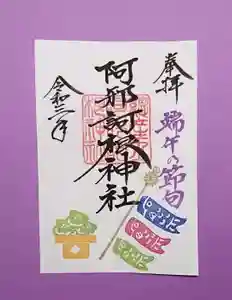 奉拝
端午の節句
阿邪訶根神社
令和二年